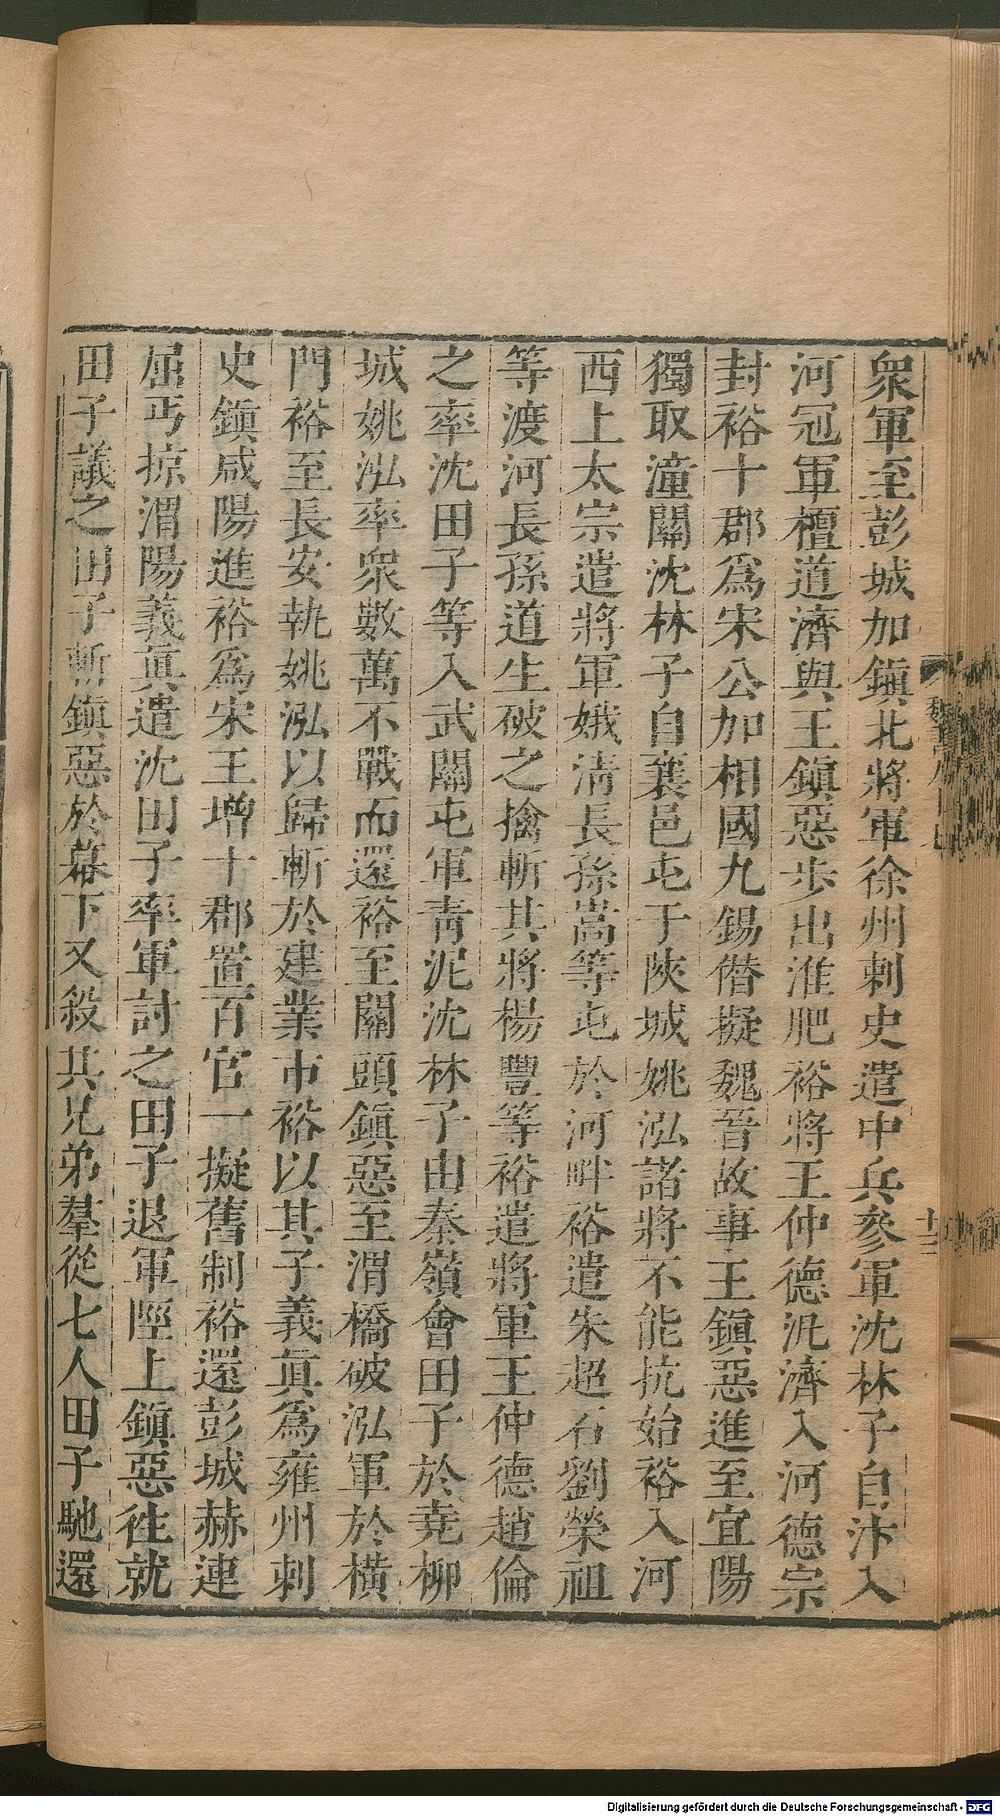 衆軍至彭城加鎭北將軍徐州刺史遣中兵參軍沈林子自汴入
河冠軍檀道濟與王鎭惡步出淮肥裕將王仲德汎濟入河德宗
封裕十郡爲宋公加相國九錫僭擬魏晉故事王鎭惡進至宜陽
獨取潼關沈林子自襄邑屯于陝城姚泓諸將不能抗始裕入河
西上太宗遣將軍娥清長孫嵩等屯於河畔裕遣朱超石劉榮祖
等渡河長孫道生破之擒斬其將楊豐等裕遣將軍王仲德趙倫
之率沈田子等入武關屯軍靑泥沈林子由秦嶺會田子於堯柳
城姚泓率衆數萬不戰而還裕至關頭鎭惡至渭橋破泓軍於橫
門裕至長安執姚泓以歸斬於建業市裕以其子義眞爲雍州刺
史鎭咸陽進裕爲宋王增十郡置百官一擬舊制裕還彭城赫連
屈丐掠渭陽義眞遣沈田子率軍討之田子退軍陘上鎭惡徃就
田子議之田子斬鎭惡於幕下又殺其兄弟羣從七人田子馳還
Digitalisierung gefördert durch die Deutsche Forschungsgemeinschaft - DFG